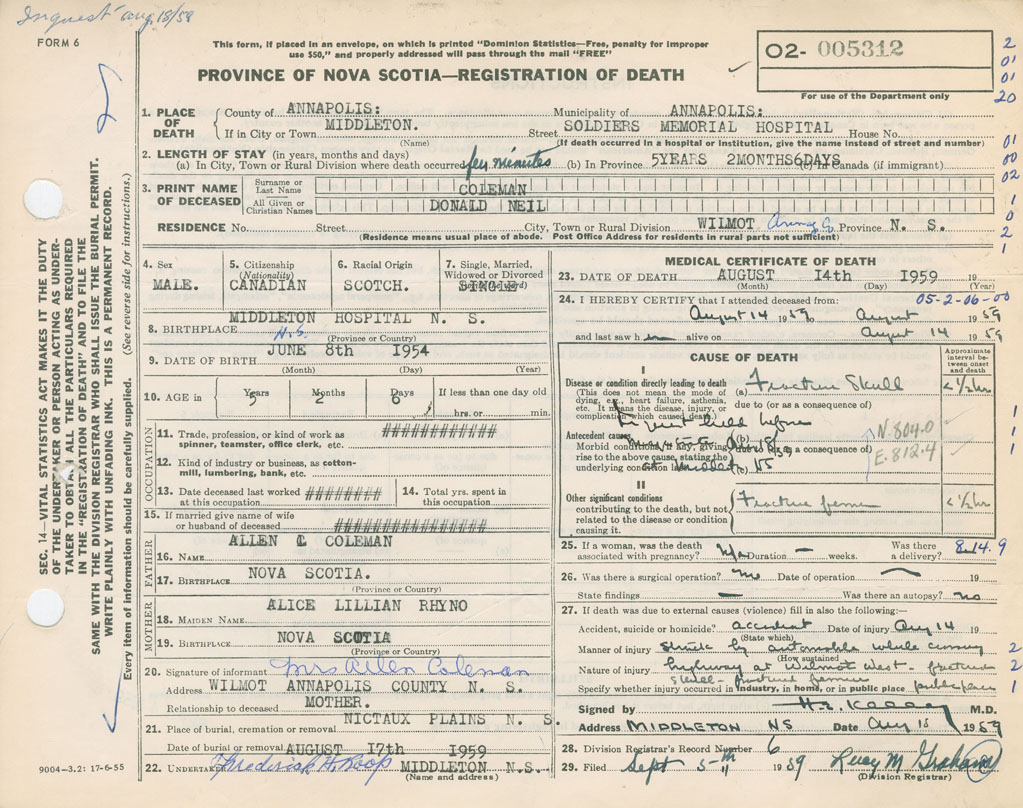 Inquest Aug 18/59
FORM 6
This form, if placed in an envelope, on which is printed "Dominion Statistics—Free, penalty for improper
use $50," and properly addressed will pass through the mail "FREE"
PROVINCE OF NOVA SCOTIA—REGISTRATION OF DEATH
02- 005312
For use of the Department only
2
01
01
20
SEC. 14—VITAL STATISTICS ACT MAKES IT THE DUTY
OF THE UNDERTAKER OR PERSON ACTING AS UNDER-
TAKER TO OBTAIN ALL THE PARTICULARS REQUIRED
IN THE "REGISTRATION OF DEATH" AND TO FILE THE
SAME WITH THE DIVISION REGISTRAR WHO SHALL ISSUE THE BURIAL PERMIT.
WRITE PLAINLY WITH UNFADING INK. THIS IS A PERMANENT RECORD.
Every item of information should be carefully supplied. (See reverse side for instructions.)
1. PLACE OF DEATH
County of ANNAPOLIS: Municipality of ANNAPOLIS:
If in City or Town MIDDLETON. Street SOLDIERS MEMORIAL HOSPITAL House No.
(Name) (If death occurred in a hospital or institution, give the name instead of street and number)
2. LENGTH OF STAY (in years, months and days)
(a) In City, Town or Rural Division where death occurred few minutes (b) In Province 5YEARS 2MONTHS6DAYS (c) In Canada (if immigrant)
01
00
02
3. PRINT NAME OF DECEASED
Surname or Last Name COLEMAN
All Given or Christian Names DONALD NEIL
1
0
2
1
RESIDENCE No. Street City, Town or Rural Division WILMOT Province N. S.
(Residence means usual place of abode. Post Office Address for residents in rural parts not sufficient)
4. Sex MALE.
5. Citizenship (Nationality) CANADIAN
6. Racial Origin SCOTCH.
7. Single, Married, Widowed or Divorced SINGLE
MIDDLETON HOSPITAL N. S.
8. BIRTHPLACE N.S.
(Province or Country)
9. DATE OF BIRTH JUNE 8th 1954
(Month) (Day) (Year)
10. AGE in 5 Years 2 Months 6 Days If less than one day old
hrs. or min.
OCCUPATION
11. Trade, profession, or kind of work as spinner, teamster, office clerk, etc. #############
12. Kind of industry or business, as cotton-mill, lumbering, bank, etc.
13. Date deceased last worked at this occupation ########
14. Total yrs. spent in this occupation
15. If married give name of wife or husband of deceased ################
FATHER
16. NAME ALLEN C COLEMAN
17. BIRTHPLACE NOVA SCOTIA.
(Province or Country)
MOTHER
18. MAIDEN NAME ALICE LILLIAN RHYNO
19. BIRTHPLACE NOVA SCOTIA
(Province or Country)
20. Signature of informant Mrs Allen Coleman
Address WILMOT ANNAPOLIS COUNTY N. S.
Relationship to deceased MOTHER.
21. Place of burial, cremation or removal NICTAUX PLAINS N. S.
Date of burial or removal AUGUST 17th 1959
22. UNDERTAKER Frederick H. Roop MIDDLETON N.S.
(Name and address)
9004-3.2: 17-6-55
MEDICAL CERTIFICATE OF DEATH
23. DATE OF DEATH AUGUST 14th 1959 19
(Month) (Day) (Year)
24. I HEREBY CERTIFY that I attended deceased from: 05-2-06-00
August 14 1959 August 1959
and last saw him alive on August 14 1959
CAUSE OF DEATH
Approximate interval between onset and death
I
Disease or condition directly leading to death (a) Fracture Skull < 1/2 hr
(This does not mean the mode of dying, e.g., heart failure, asthenia, etc. It means the disease, injury, or complication which caused death.)
due to (or as a consequence of)
Antecedent causes (b)
Morbid conditions, if any, giving rise to the above cause, stating the underlying condition last
due to (or as a consequence of)
(c)
N-804.0
E-812.4
II
Other significant conditions Fracture femur < 1/2 hr
contributing to the death, but not related to the disease or condition causing it.
1
1
1
25. If a woman, was the death associated with pregnancy? N/A Duration — weeks. Was there a delivery? 8.14.9
26. Was there a surgical operation? no Date of operation — 19
State findings — Was there an autopsy? no
27. If death was due to external causes (violence) fill in also the following:—
Accident, suicide or homicide? accident Date of injury Aug 14 19
(State which)
Manner of injury struck by automobile while crossing 2
(How sustained)
Nature of injury highway at Wilmot West - fractured 2
skull - fractured femur
Specify whether injury occurred in industry, in home, or in public place public place 1
Signed by M.D.
Address MIDDLETON NS Date Aug 18 1959
28. Division Registrar's Record Number 6
29. Filed Sept 5th 1959 Lucy M Graham
(Division Registrar)